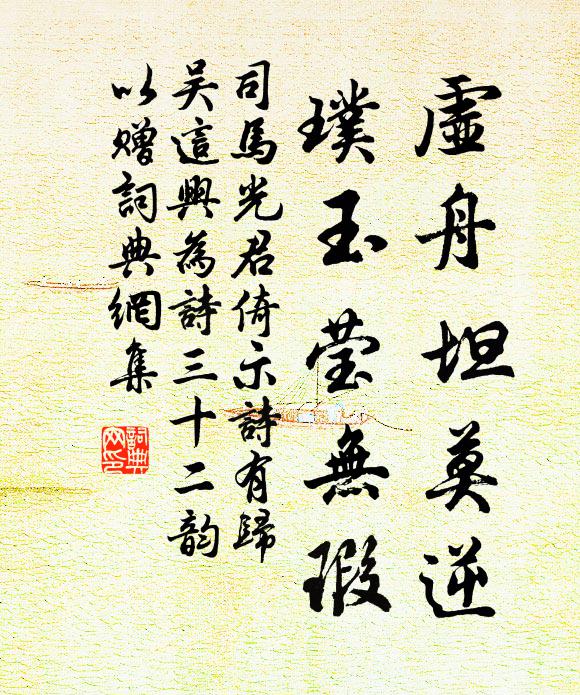 虛舟坦莫逆
璞玉莹無瑕
司馬光君倚示詩有歸
吴這興為詩三十二韵
以贈詞典網集
詞典
网印